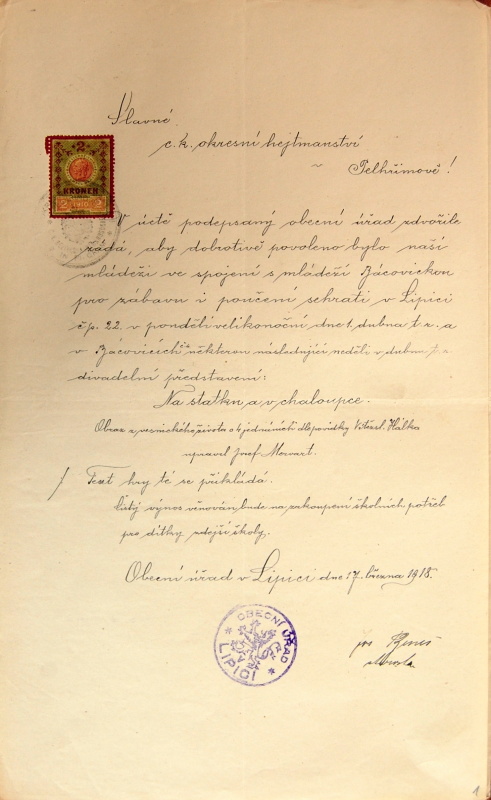 Slavné
c. k. okresní hejtmanství
v Pelhřimově!
2
KRONEN
2 2
V úctě podepsaný obecní úřad zdvořile
žádá, aby dobrotivě povoleno bylo naší
mládeži ve spojení s mládeží Bácovickou
pro zábavu i poučení sehráti v Lipici
čp. 22. v pondělí velikonoční dne 1. dubna t. r. a
v Bácovicích některou následující neděli v dubnu t. r.
divadelní představení:
Na statku a v chaloupce.
Obraz z vesnického života o 1 jednání dle povídky Vítězsl. Hálka
upravil Josef Morvart.
Text hry té se přikládá.
Čistý výnos věnován bude na zakoupení školních potřeb
pro dítky zdejší školy.
Obecní úřad v Lipici dne 17. března 1918.
OBECNÍ ÚŘAD
LIPICI
Beneš
1